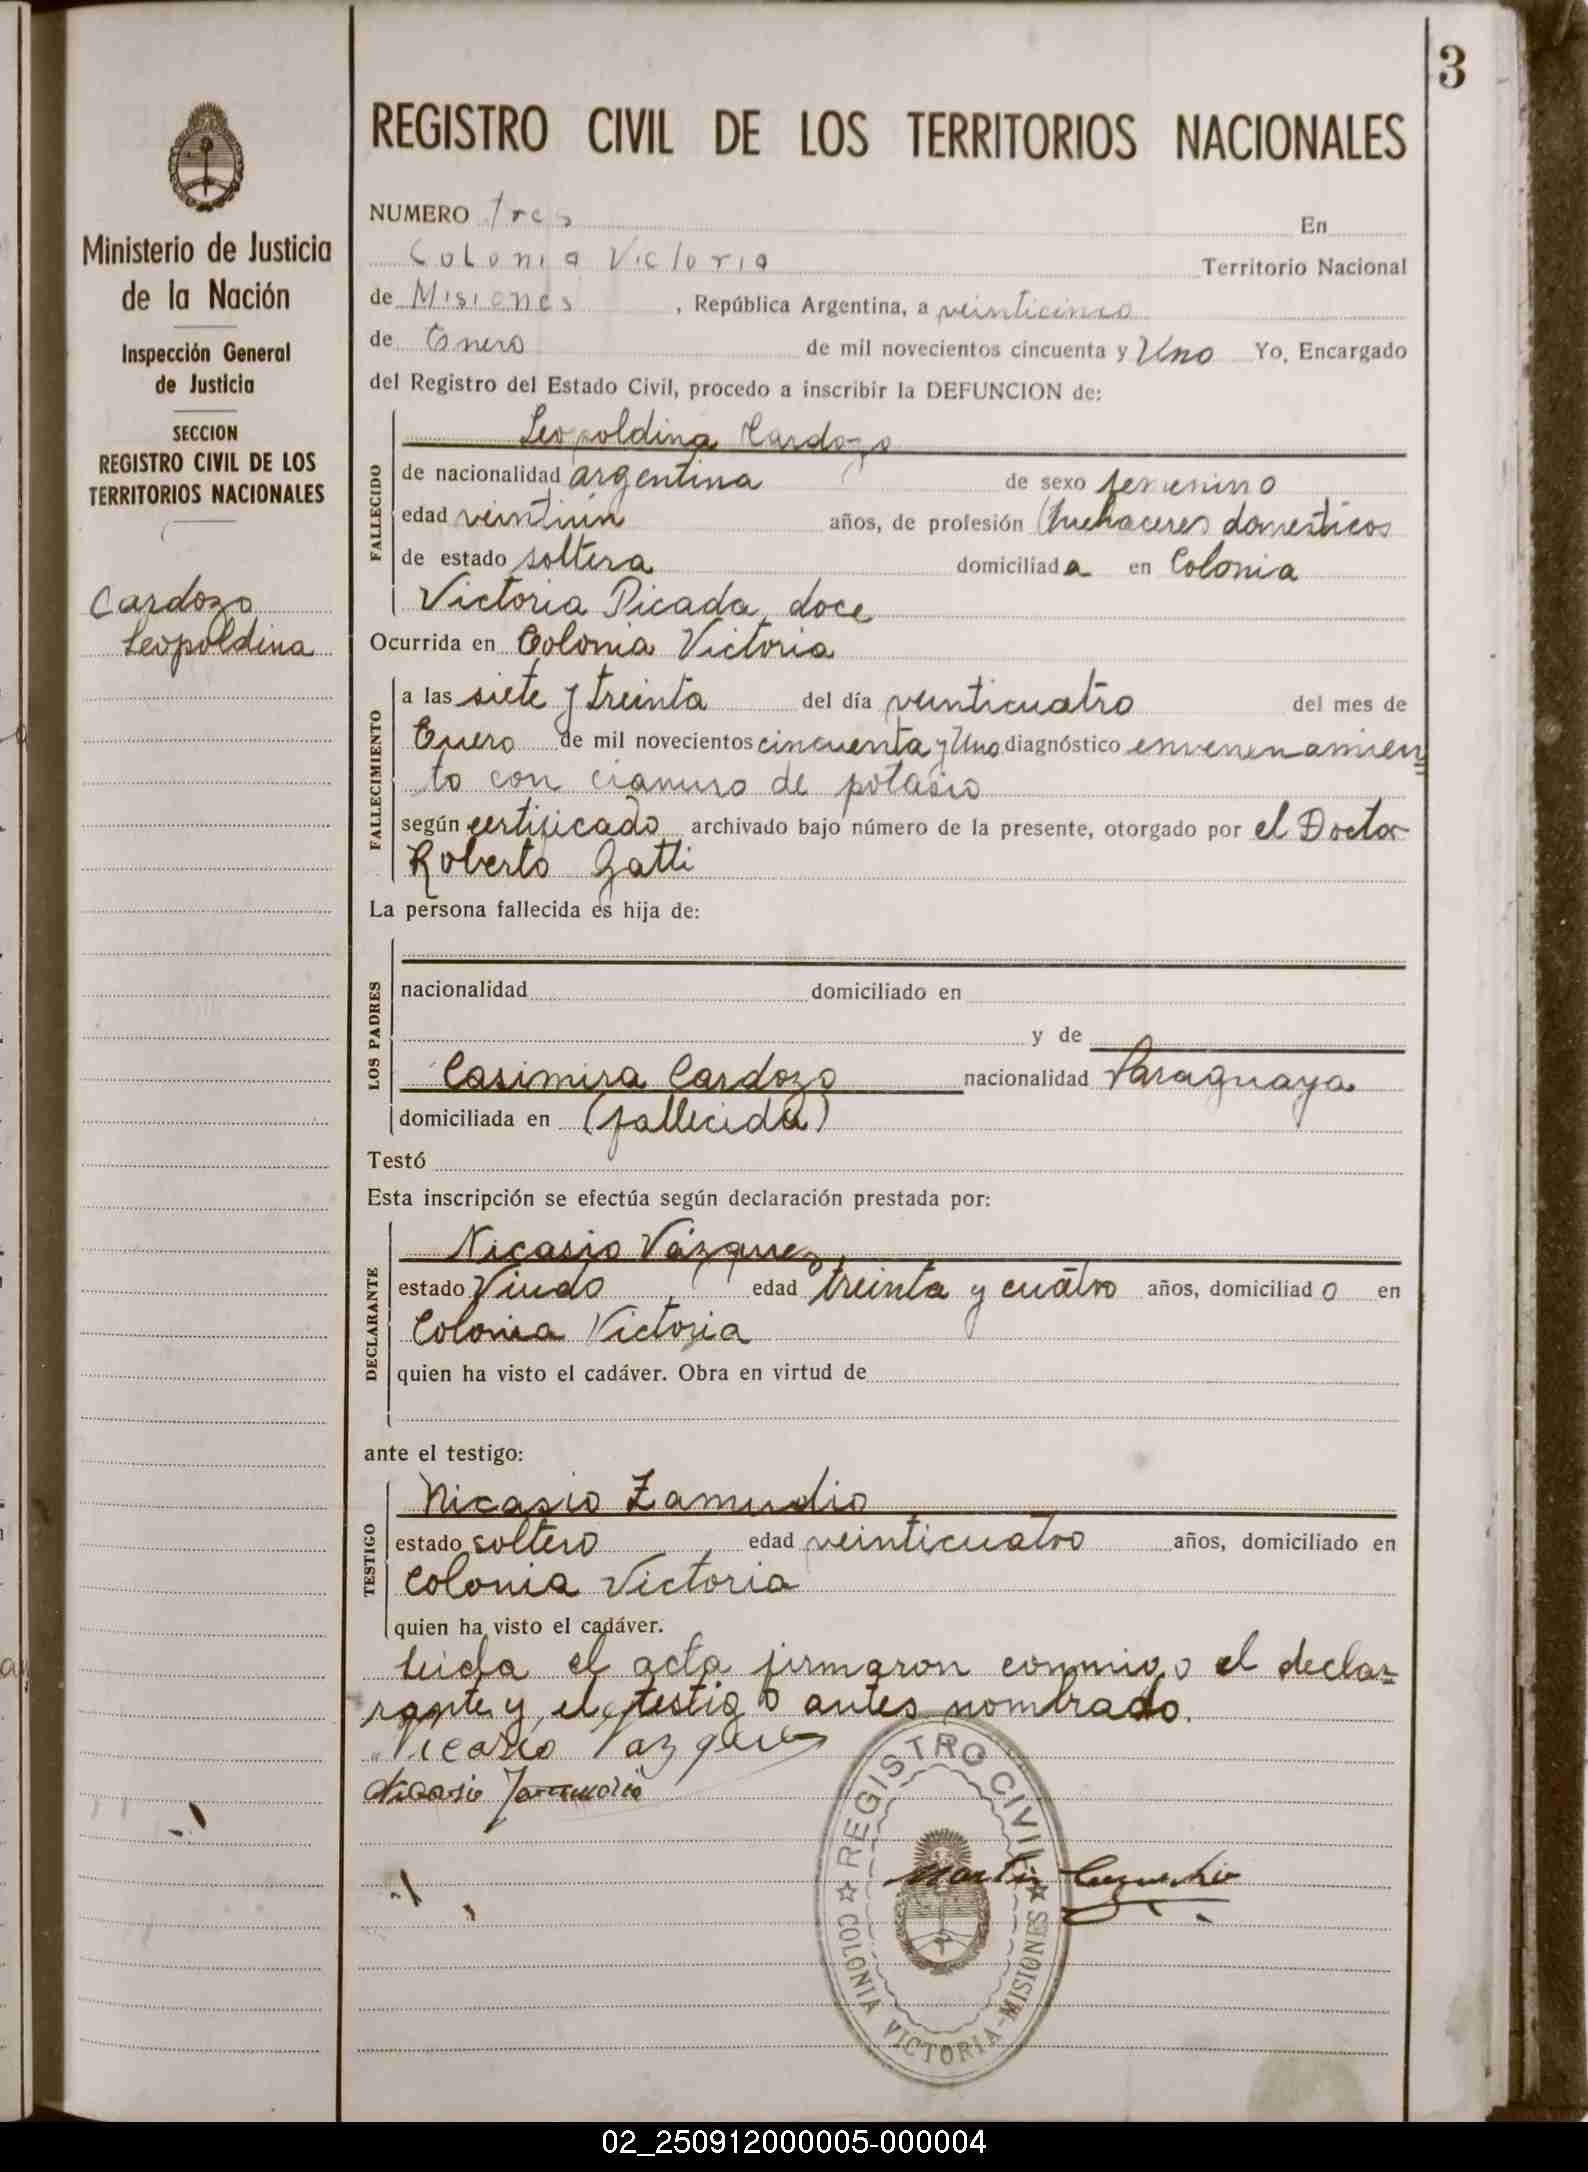 3
Ministerio de Justicia
de la Nación
Inspección General
de Justicia
SECCION
REGISTRO CIVIL DE LOS
TERRITORIOS NACIONALES
Cardozo
Leopoldina
REGISTRO CIVIL DE LOS TERRITORIOS NACIONALES
NUMERO tres En
Colonia Victoria Territorio Nacional
de Misiones, República Argentina, a veinticinco
de Enero de mil novecientos cincuenta y Uno Yo, Encargado
del Registro del Estado Civil, procedo a inscribir la DEFUNCION de:
FALLECIDO
Leopoldina Cardozo
de nacionalidad argentina de sexo femenino
edad veintiún años, de profesión Quehaceres domesticos
de estado soltera domiciliada en Colonia
Victoria Picada doce
Ocurrida en Colonia Victoria
FALLECIMIENTO
a las siete y treinta del día veinticuatro del mes de
Enero de mil novecientos cincuenta y Uno diagnóstico envenenamien=
to con cianuro de potasio
según certificado archivado bajo número de la presente, otorgado por el Doctor
Roberto Gatti
La persona fallecida es hija de:
LOS PADRES
nacionalidad domiciliado en
y de
Casimira Cardozo nacionalidad Paraguaya
domiciliada en (fallecida)
Testó
Esta inscripción se efectúa según declaración prestada por:
DECLARANTE
Nicasio Vázquez
estado Viudo edad treinta y cuatro años, domiciliado en
Colonia Victoria
quien ha visto el cadáver. Obra en virtud de
ante el testigo:
TESTIGO
Nicasio Zamudio
estado soltero edad veinticuatro años, domiciliado en
Colonia Victoria
quien ha visto el cadáver.
Leida el acta firmaron conmigo el decla=
rante y el testigo antes nombrado.
Nicasio Vazquez
Nicasio Zamudio
REGISTRO CIVIL
COLONIA VICTORIA-MISIONES
Martin
02_250912000005-000004